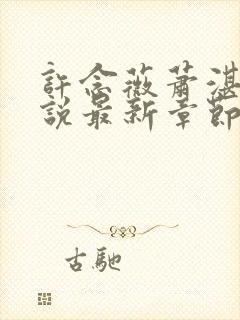 許念薇蕭湛
說最新章節
古馳